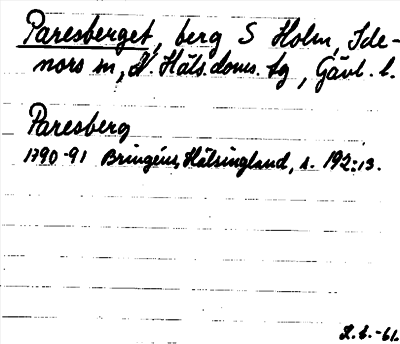 Paresberget, berg S Holm, Ide-
nors sn, N. Häls. doms. tg, Gävl. l.
Paresberg
1790-91 Bringéus, Hälsingland, s. 192:13.
L.L.-61.